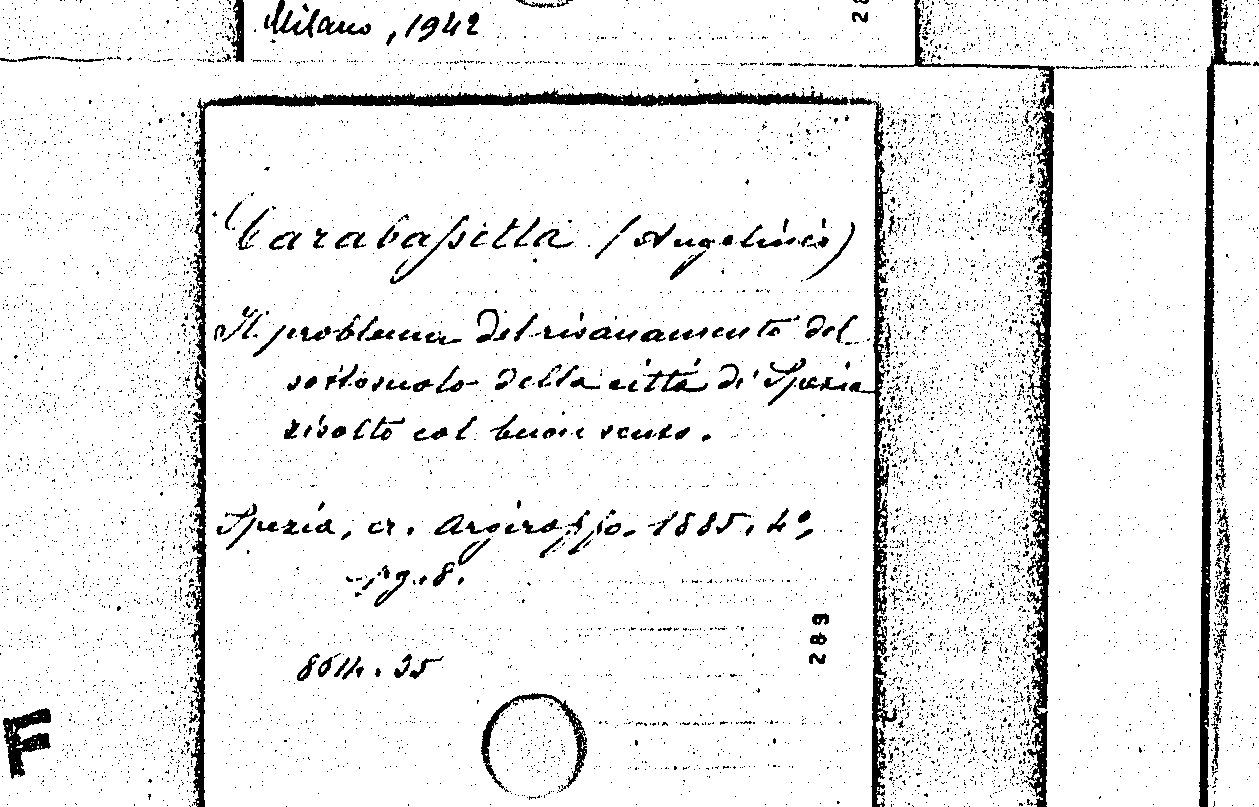 Milano, 1942
28
Tarabasilla (Angelini)
Il problema del risanamento del
sottosuolo della città di Spezia
risolto col buon senso.
Spezia, cr. Argiroffo. 1885. 4°,
pg. 8.
289
F